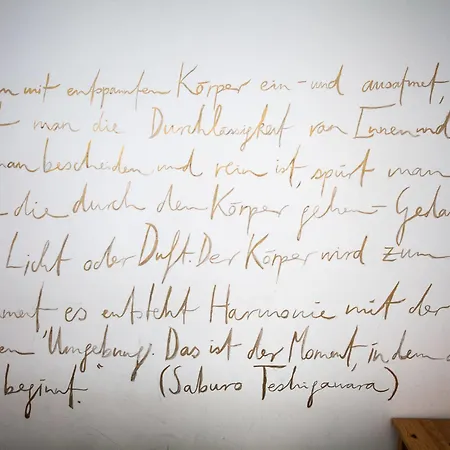 n mit entspannten Körper ein- und ausatmet,
t man die Durchlässigkeit von Innen und
man bescheiden und rein ist, spürt man
die durch den Körper gehen - Geda
Licht oder Duft. Der Körper wird zum
ment es entsteht Harmonie mit der
en Umgebung. Das ist der Moment, in dem d
beginnt." (Saburo Teshigawara)